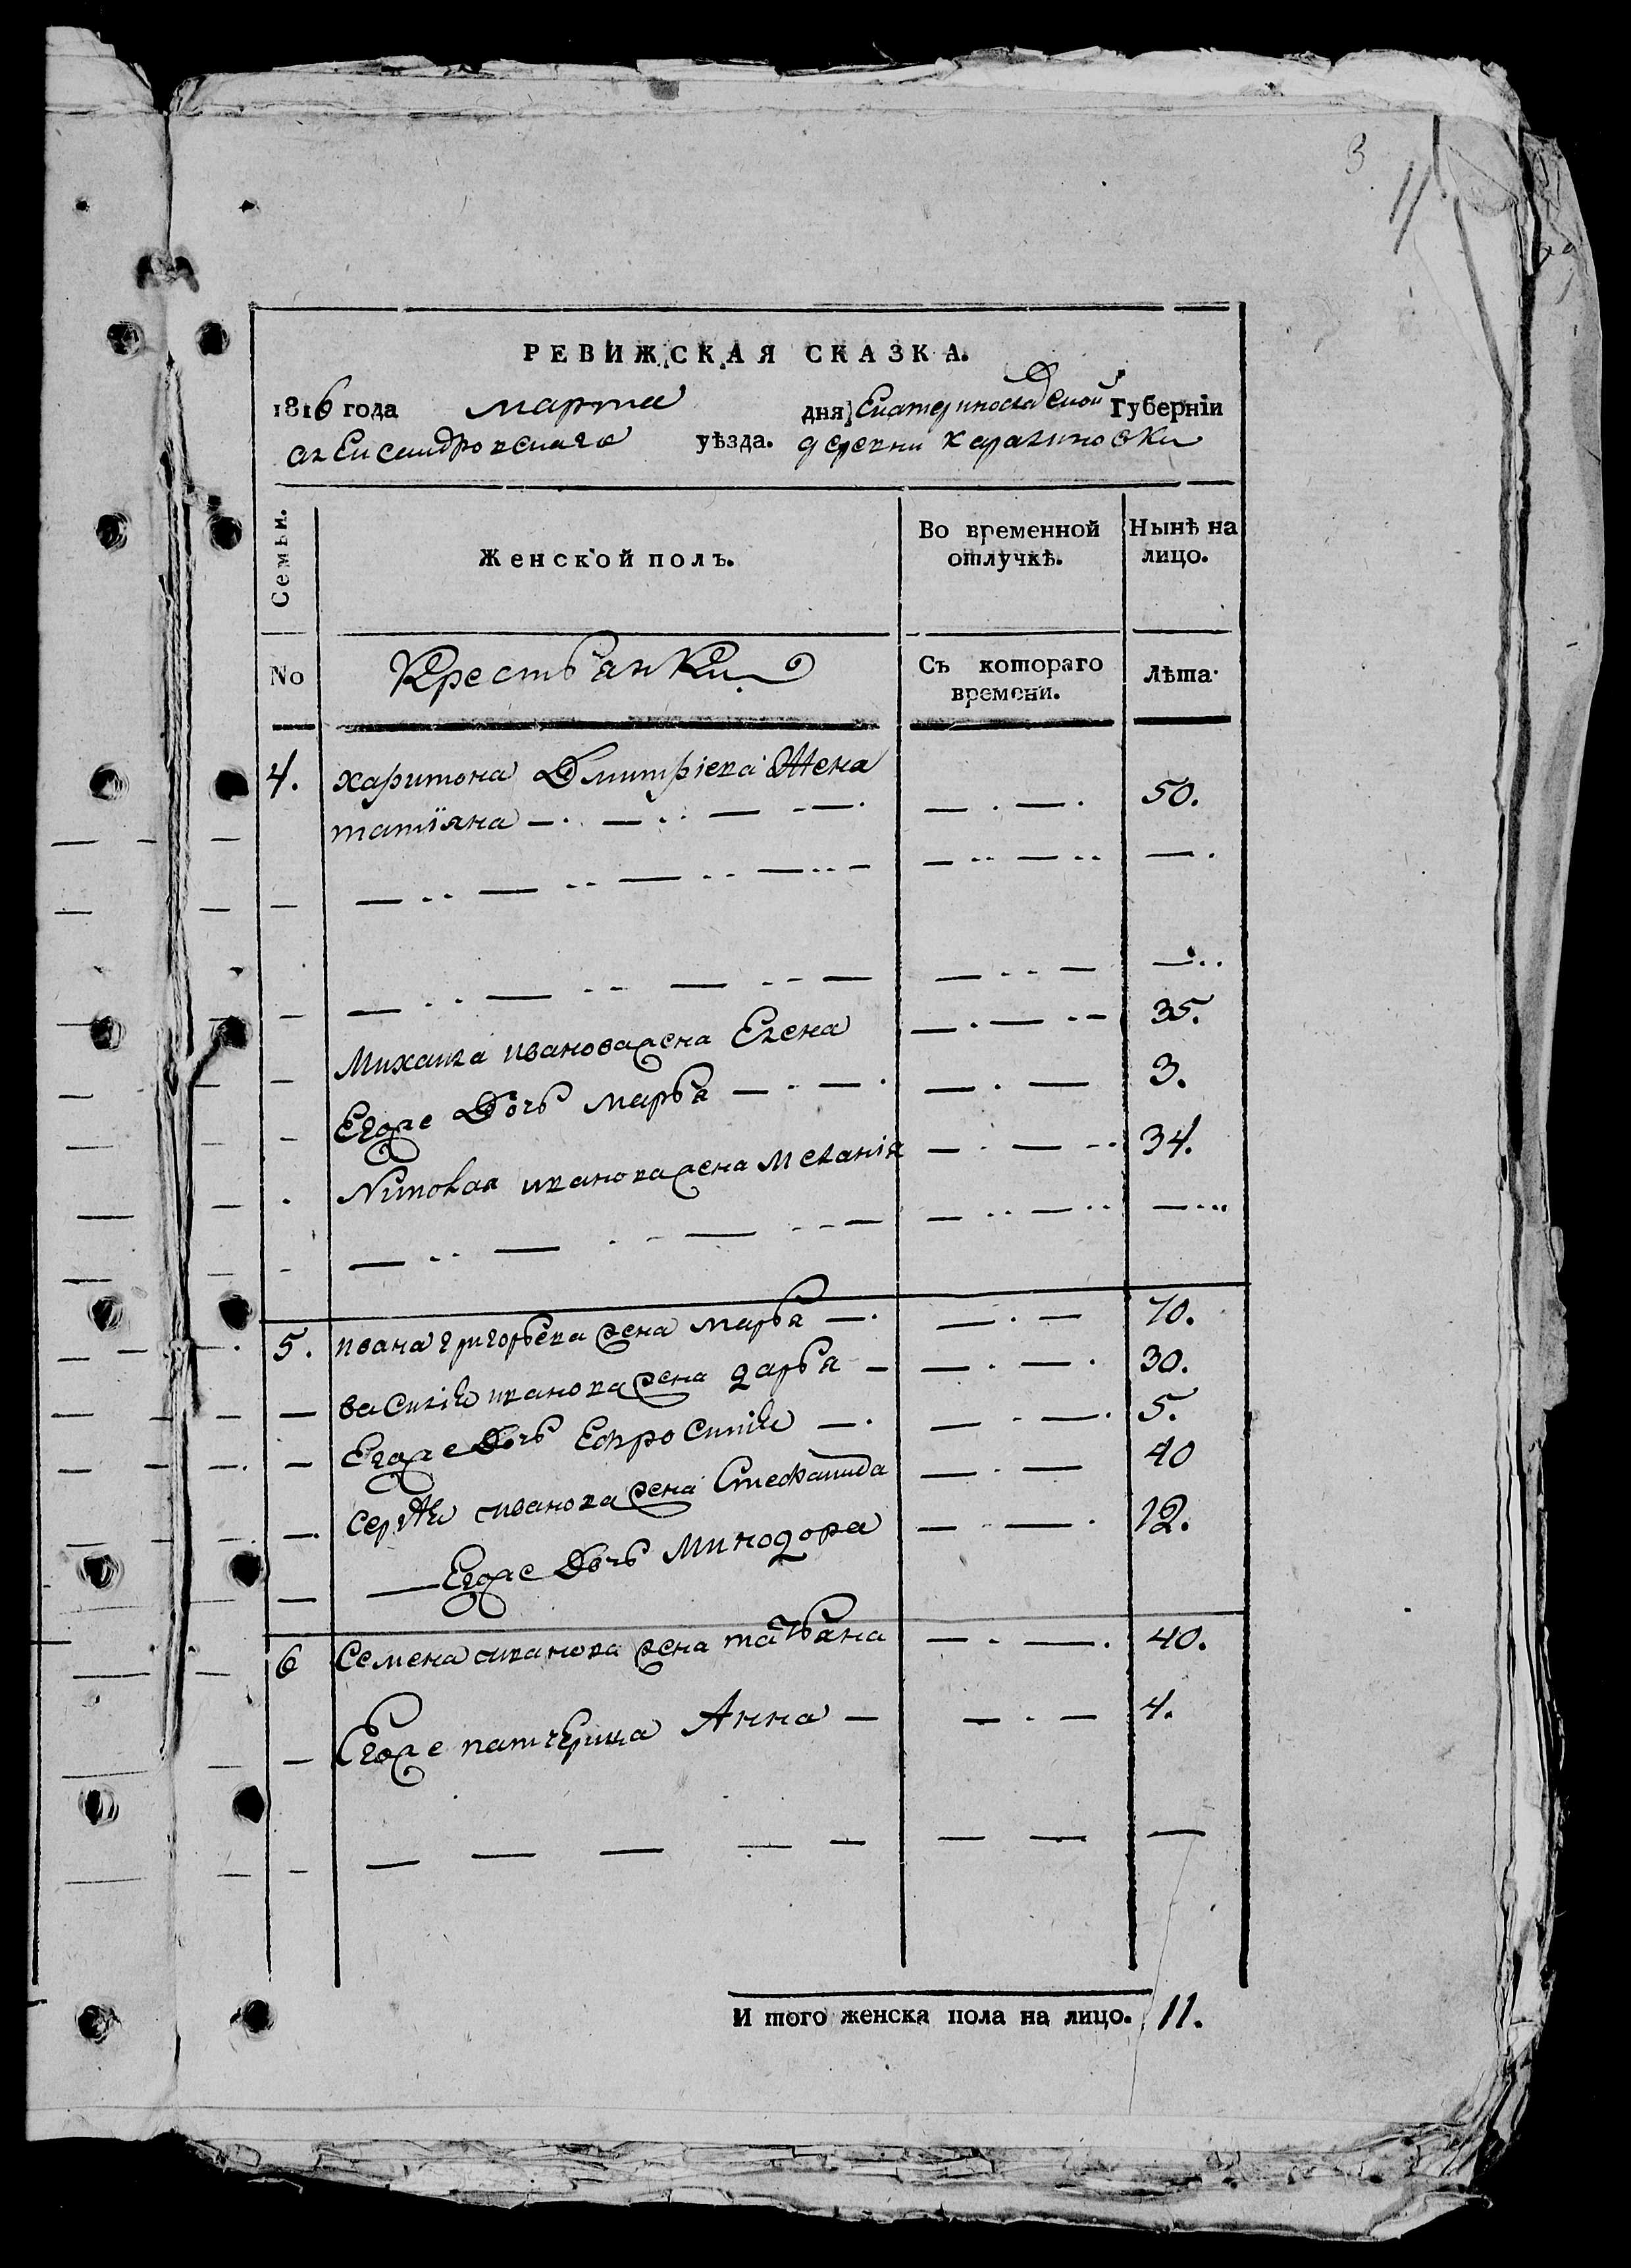 3
11
РЕВИЖСКАЯ СКАЗКА.
1816 года марта дня Екатеринославской Губернiи
александровскаго уѣзда. деревни каратиновки
Семьи. Женской полъ. Во временной отлучкѣ. Нынѣ на лицо.
No Крестьянки Съ котораго времени. лѣта.
4. харитона Дмитрiева Жена
татïяна — — — — — — 50.
— — — — — — —
— — — — — — —
Михаила иванова жена Елена — — 35.
Егоже Дочь марья — — — — 3.
Николая иванова жена меланiя — — 34.
— — — — — — —
5. ивана григорьева жена марья — — — 70.
— василiя иванова жена дарья — — — 30.
— Егоже Дочь Ефросинiя — — — 5.
— сергѣя иванова жена Стефанида — — 40
— — Егоже Дочь Минодора — — 12.
6 Семена иванова жена татьяна — — 40.
— Егоже патчерица Анна — — — 4.
— — — — — — — — —
И того женска пола на лицо. 11.